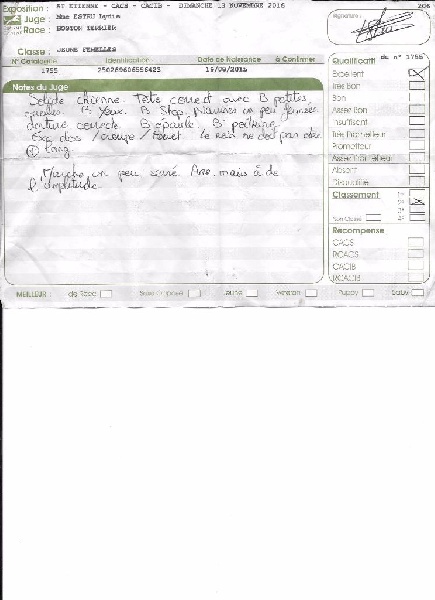 Exposition : ST ETIENNE - CACS - CACIB - DIMANCHE 13 NOVEMBRE 2016
206
Juge : Mme ESTRU Lydie
Race : BOSTON TERRIER
Signature :
Classe : JEUNE FEMELLES
N° Catalogue Identification Date de Naissance à Confirmer
1755 250269606556423 19/09/2015
Qualificatif du n° 1755
Excellent
Très Bon
Bon
Assez Bon
Insuffisant
Très Prometteur
Prometteur
Assez Prometteur
Absent
Disqualifié
Classement 1er
2e
3e
Non Classé 4e
Récompense
CACS
RCACS
CACIB
RCACIB
Notes du Juge
Tête correct avec B petites
oreilles. B Yeux. B Stop. Narines un peu fermées
denture correcte. B épaule B poitrine
dos / croupe / fouet le rein ne doit pas être
+ long
Marche un peu serré Arr. mais a de
l'amplitude.
MEILLEUR : de Race Sexe Opposé Jeune Vétéran Puppy Baby